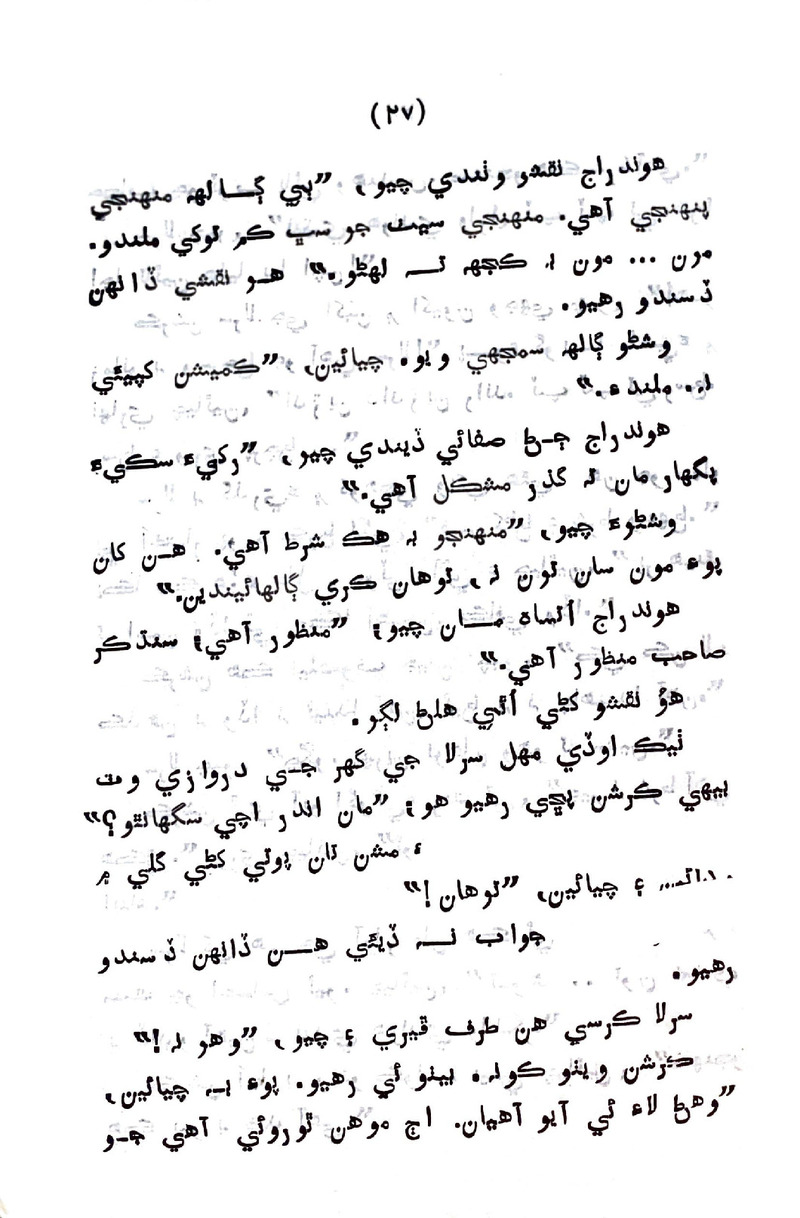 (۲۷)
هوندراج نقشو وٺندي چيو، ”ٻي ڳالهہ منهنجي
پنهنجي آهي. منهنجي سيٺ جو سڀ ڪم توکي ملندو.
مون ... مون ۾ ڪجهہ نہ لهڻو.“ هو نقشي ڏانهن
ڏسندو رهيو.
وشڻو ڳالهہ سمجهي ويو. چيائين، ”ڪميشن کپيئي
ملندءِ.“
هوندراج ڄڻ صفائي ڏيندي چيو، ”رکيءَ سکيءَ
پگهار مان تہ گذر مشڪل آهي.“
وشڻوءَ چيو، ”منهنجو بہ هڪ شرط آهي. هن کان
پوءِ مون سان تون نہ، توهان ڪري ڳالهائيندين.“
هوندراج اُتساهہ مان چيو؛ ”منظور آهي؛ سنڌڪر
صاحب منظور آهي.“
هوُ نقشو کڻي اُٿي هلڻ لڳو.
ٺيڪ اوڏي مهل سرلا جي گهر جي دروازي وٽ
بيهي ڪرشن پڇي رهيو هو؛ ”مان اندر اچي سگهانٿو؟“
مشن تان پوٽي کڻي گلي ۾
۽ چيائين، ”توهان!“
جواب نہ ڏيئي هن ڏانهن ڏسندو
رهيو.
سرلا ڪرسي هن طرف ڦيري ۽ چيو، ”وهو نہ!“
ڪرشن ويٺو ڪونہ. بيٺو ئي رهيو. پوءِ بہ چيائين،
”وهڻ لاءِ ئي آيو آهيان. اڄ موهن ٿوروئي آهي جو